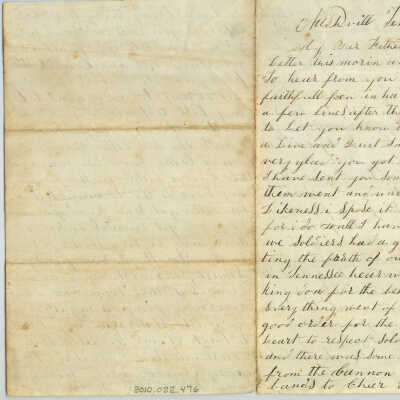 My Dear Father
Letter this morin a
to hear from you
faithfull son in ha
a few lines after th
to Let you know
a Live and
very glad you got
I have sent you som
them went and
Likeness i spose it
for i do
we Soldiers had a g
ting the forth of
in Tennessee hear w
king don for the be
Everything went of
good order for the
heart to respect Sol
and there was some
from the Cannon
bands to Cheer
2010.022.476